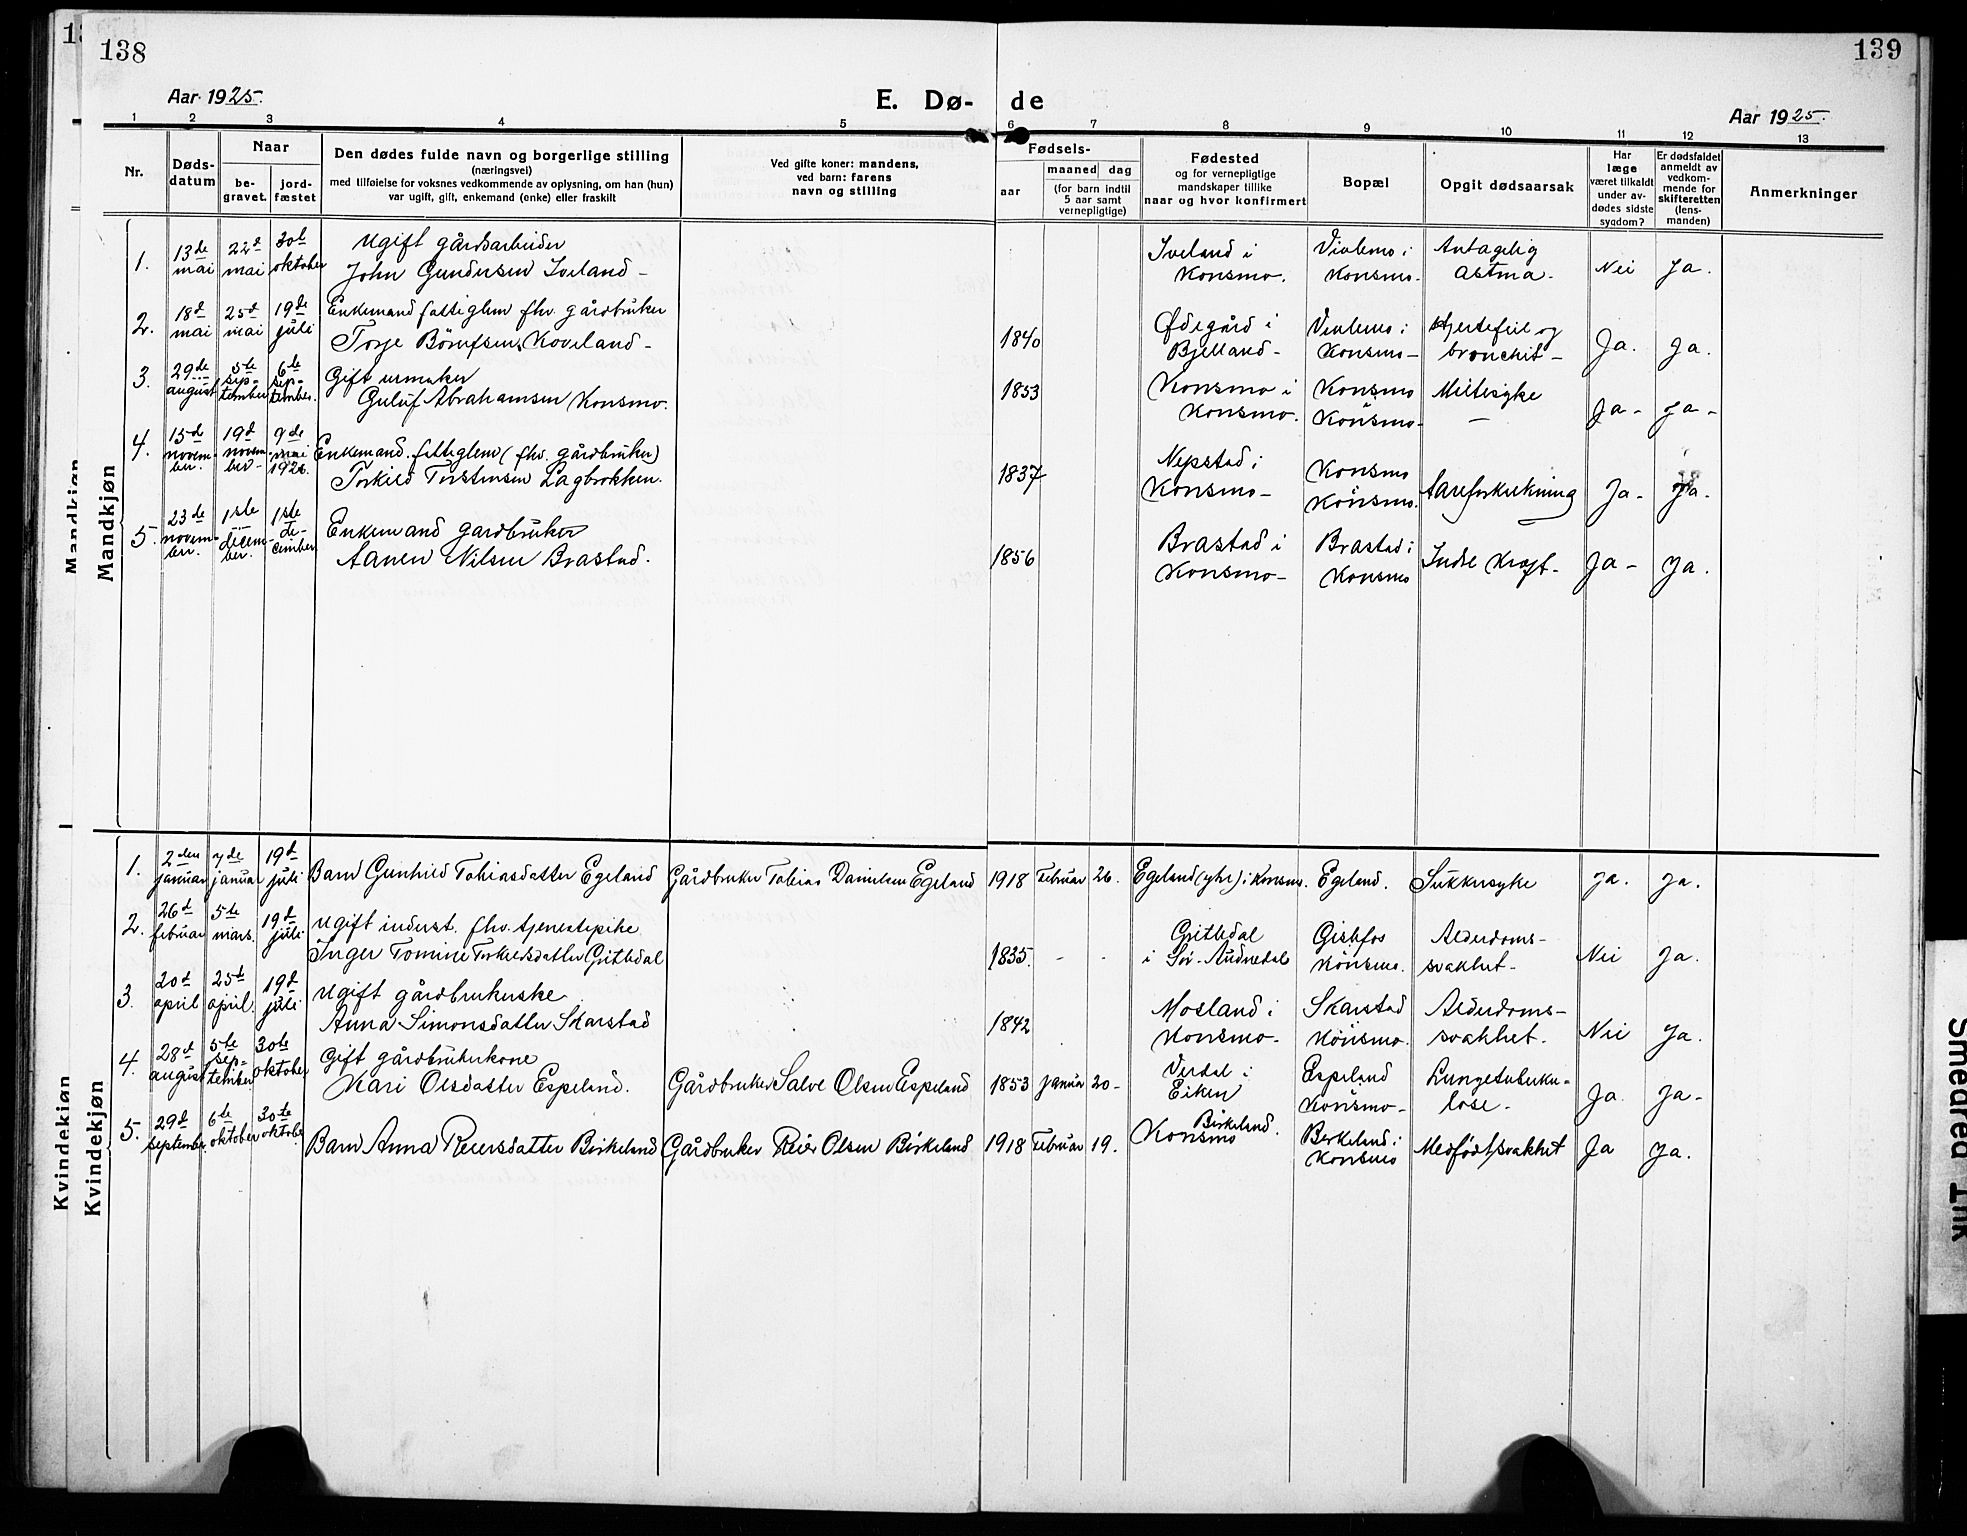 138
139
Aar 1925.
E. Dø-
de
Aar 1925.
1 2 3 4 5 6 7 8 9 10 11 12 13
Nr.
Døds-
datum
Naar
be-
gravet.
jord-
fæstet
Den dødes fulde navn og borgerlige stilling
(næringsvei)
med tilføielse for voksnes vedkommende av oplysning, om han (hun)
var ugift, gift, enkemand (enke) eller fraskilt
Ved gifte koner: mandens,
ved barn: farens
navn og stilling
Fødsels-
aar
maaned dag
(for barn indtil
5 aar samt
vernepligtige)
Fødested
og for vernepligtige
mandskaper tillike
naar og hvor konfirmert
Bopæl
Opgit dødsaarsak
Har
læge
været tilkaldt
under av-
dødes sidste
sygdom?
Er dødsfaldet
anmeldt av
vedkom-
mende for
skifteretten
(lens-
manden)
Anmerkninger
Mandkjøn
Mandkjøn
1.
13de
mai
22d
mai
30te
oktober
Ugift gårdsarbeider
John Gundersen Iveland -
Iveland i
Konsmo.
Vivlemo i
Konsmo.
Antagelig
astma.
Nei
Ja.
2.
18d
mai
25d
mai
19de
juli
Enkemand fattiglem fhv. gårdbruker
Torje Börufsen Koveland -
1840
Ødegård i
Bjelland -
Vivlemo i
Konsmo -
Hjertefeil og
bronchit -
Ja.
Ja.
3.
29de
august
5te
sep-
tember
6te
sep-
tember.
Gift urmaker
Guluf Abrahamsen Konsmo.
1853
Konsmo i
Konsmo.
Konsmo
Konsmo -
Miltesyke
-
Ja -
Ja -
4.
15de
novem-
ber.
19d
novem-
ber -
9de
mai
1926
Enkemand. fattiglem (fhv. gårdbruker)
Torkild Terstensen Lagbrokken.
1837
Nepstad i
Konsmo -
Konsmo
Konsmo.
Aareforkalkning
Ja -
Ja.
5.
23de
novem-
ber.
1ste
decem-
ber.
1ste
de-
cember
Enkemand gardbruker
Aanen Nilsen Brastad.
1856
Brastad i
Konsmo -
Brastad i
Konsmo
Indre Kræft -
Ja -
Ja.
Kvindekjøn
Kvindekjøn
1.
2den
januar
7de
januar
19d
juli
Barn Gunhild Tobiasdatter Egeland
Gårdbruker Tobias Danielsen Egeland
1918 Februar 26.
Egeland (ytre) i Konsmo.
Egeland.
Sukkersyke
Ja.
Ja.
2.
26d
februar
5te
mars.
19d
juli
Ugift inderst. fhv. tjenestepike
Inger Tomine Torkildsdatter Gitledal
1835. - -
Gritledal
i Sör-Audnedal
Gishfos
Konsmo.
Alderdoms-
svakhet -
Nei
Ja.
3.
20d
april
25d
april.
19d
juli
Ugift gårdbrukerske
Anna Simonsdatter Skarstad
1842
Mosland i
Konsmo -
Skarstad
Konsmo.
Alderdoms-
svakhet.
Nei
Ja.
4.
28d
august
5te
sep-
tember
30te
oktober
Gift gårdbrukerkone
Kari Olsdatter Espeland.
Gårdbruker Salve Olsen Espeland
1853 januar 20 -
Verdal i
Eiken
Espeland
Konsmo -
Lungetuberku-
lose -
Ja.
Ja -
5.
29d
september.
6te
oktober
30te
oktober
Barn Anna Reiersdatter Birkeland
Gårdbruker Reier Olsen Birkeland
1918 Februar 19.
Birkeland.
Konsmo
Birkeland i
Konsmo
Medfödt svakhet
Ja
Ja.
Smeared Ink